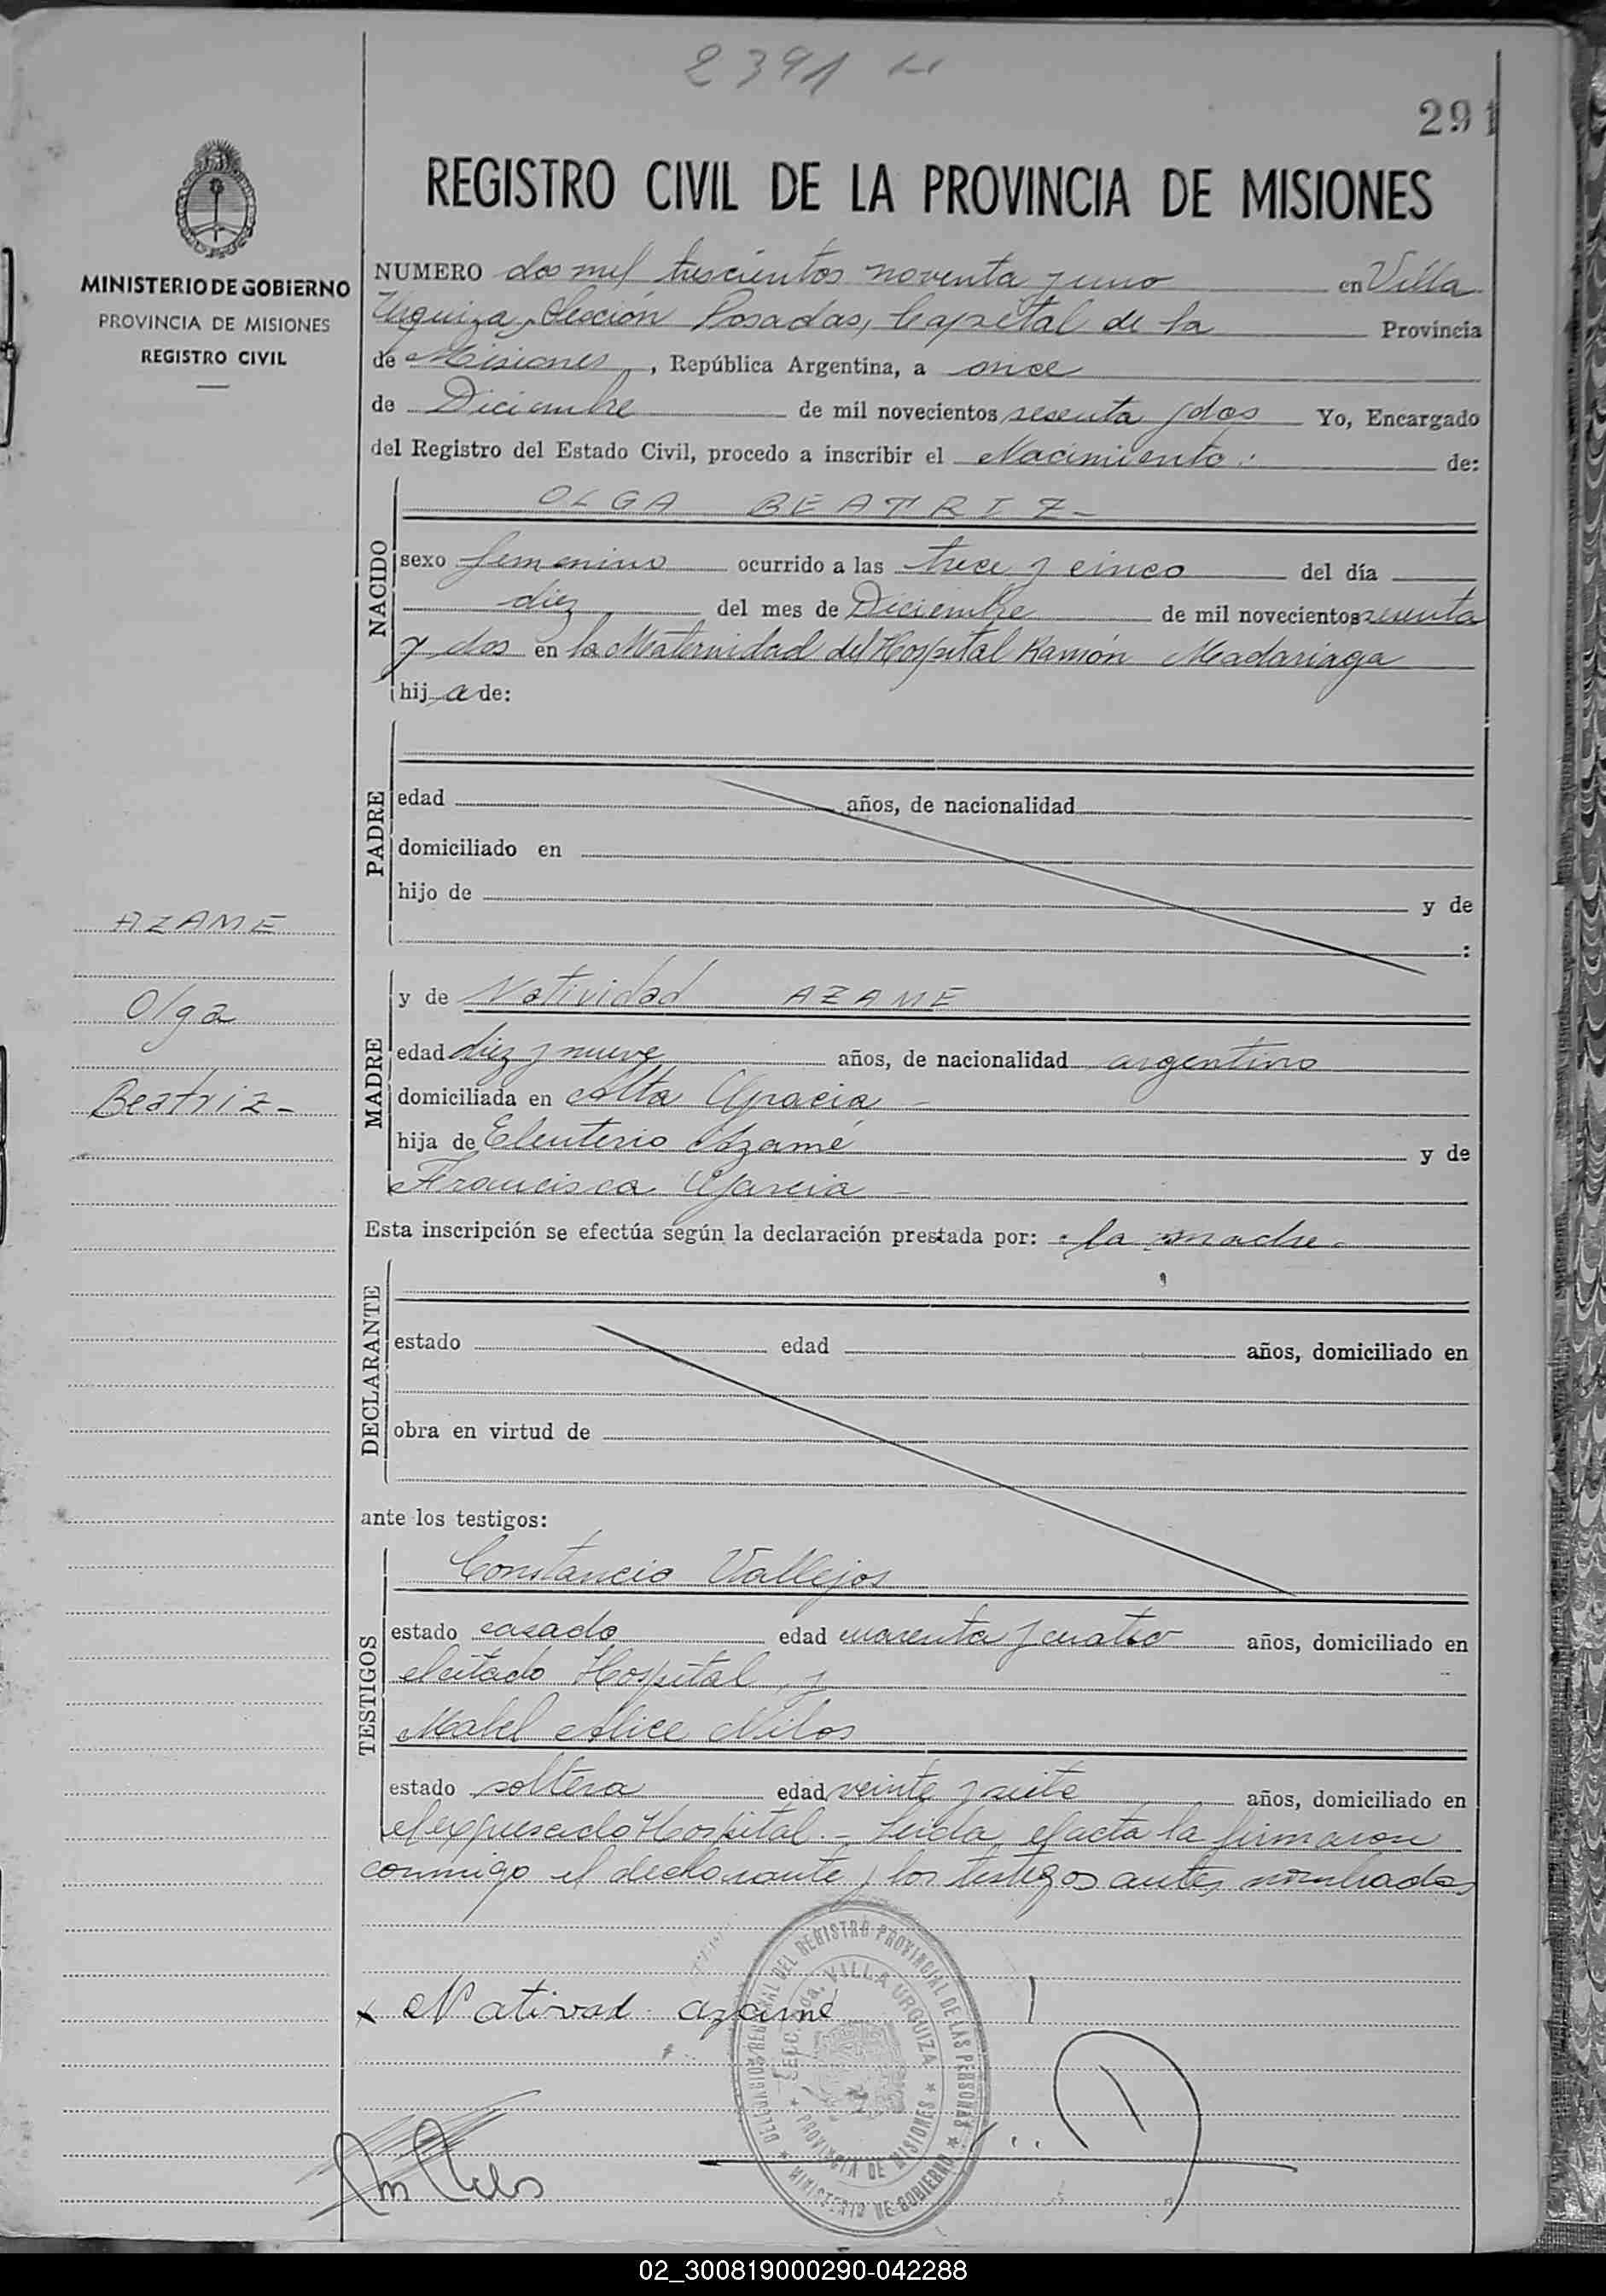 2391
291
REGISTRO CIVIL DE LA PROVINCIA DE MISIONES
MINISTERIO DE GOBIERNO
PROVINCIA DE MISIONES
REGISTRO CIVIL
NUMERO dos mil trescientos noventa y uno en Villa
Urquiza, Sección Posadas, Capital de la Provincia
de Misiones, República Argentina, a once
de Diciembre de mil novecientos sesenta y dos Yo, Encargado
del Registro del Estado Civil, procedo a inscribir el Nacimiento: de:
NACIDO
OLGA BEATRIZ-
sexo femenino ocurrido a las trece y cinco del día
diez del mes de Diciembre de mil novecientos sesenta
y dos en la Maternidad del Hospital Ramón Madariaga
hij a de:
PADRE
edad años, de nacionalidad
domiciliado en
hijo de y de
:
AZAME
Olga
Beatriz-
MADRE
y de Natividad AZAME
edad diez y nueve años, de nacionalidad argentino
domiciliada en Alta Gracia -
hija de Eleuterio Azamé y de
Francisca Garcia -
Esta inscripción se efectúa según la declaración prestada por: la madre-
DECLARANTE
estado edad años, domiciliado en
obra en virtud de
ante los testigos:
TESTIGOS
Constancio Vallejos
estado casado edad cuarenta y cuatro años, domiciliado en
el citado Hospital y
Mabel Alice Milos
estado soltera edad veinte y siete años, domiciliado en
el expresado Hospital.- Leida el acta la firmaron
conmigo el declarante y los testigos antes nombrados
x Nativad azamé
DEL REGISTRO PROVINCIAL DE LAS PERSONAS
VILLA URQUIZA
PROVINCIA DE MISIONES
MINISTERIO DE GOBIERNO
02_300819000290-042288